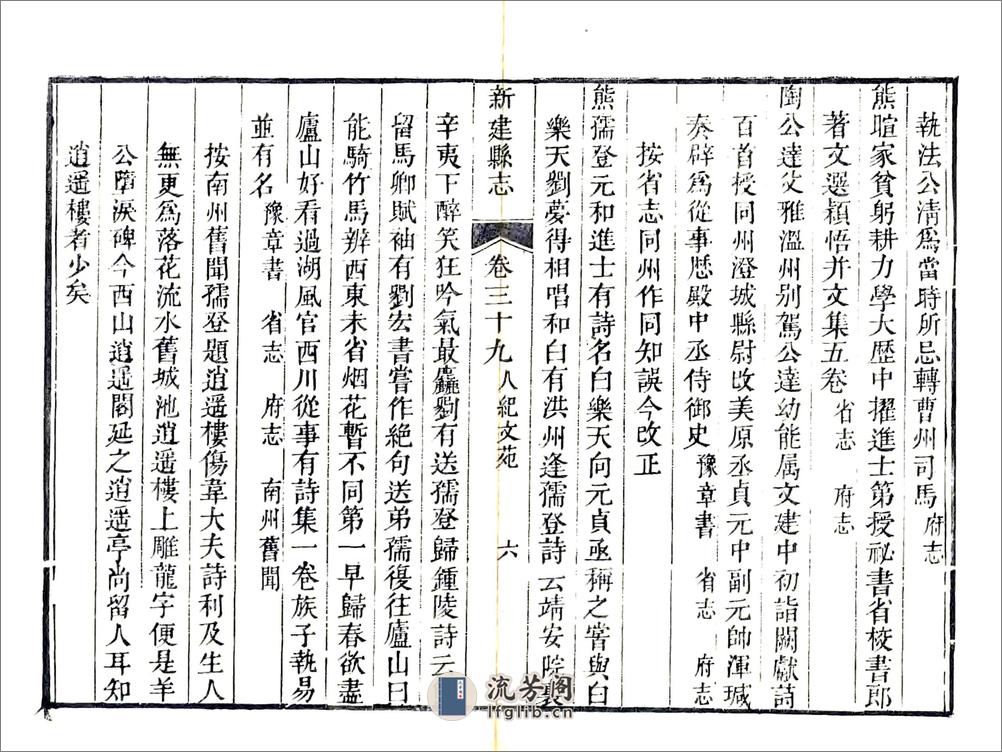 執法公淸爲當時所忌轉曹州司馬府志
熊暄家貧躬耕力學大歷中擢進士第授祕書省校書郎
著文選穎悟并文集五卷省志 府志
陶公達父雅溫州别駕公達幼能属文建中初詣闕獻詩
百首授同州澄城縣尉改美原丞貞元中副元帥渾瑊
奏辟爲從事歷殿中丞侍御史豫章書 省志 府志
按省志同州作同知誤今改正
熊孺登元和進士有詩名白樂天向元貞亟稱之嘗與白
樂天劉夢得相唱和白有洪州逢孺登詩云靖安院裏
新建縣志 卷三十九 人紀文苑 六
辛夷下醉笑狂吟氣最麤劉有送孺登歸鍾陵詩云
留馬卿賦袖有劉宏書嘗作絕句送弟孺復往廬山曰
能騎竹馬辨西東未省烟花暫不同第一早歸春欲盡
廬山好看過湖風官西川從事有詩集一卷族子執易
並有名豫章書 省志 府志 南州舊聞
按南州舊聞孺登題逍遥樓傷韋大夫詩利及生人
無更爲落花流水舊城池逍遥樓上雕龍字便是羊
公墮淚碑今西山逍遥閣延之逍遥亭尚留人耳知
逍遥樓者少矣
流芳阁
lfglib.cn